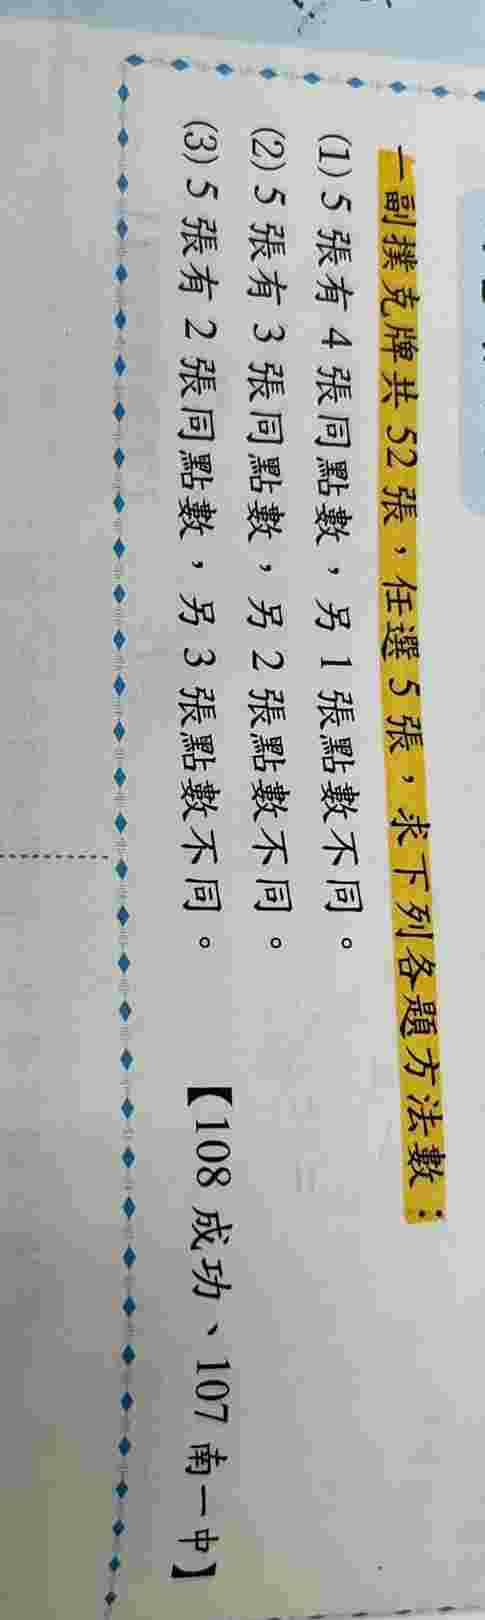 一副撲克牌共 52 張，任選 5 張，求下列各題方法數：
(1) 5 張有 4 張同點數，另 1 張點數不同。
(2) 5 張有 3 張同點數，另 2 張點數不同。
(3) 5 張有 2 張同點數，另 3 張點數不同。
【108 成功、107 南一中】